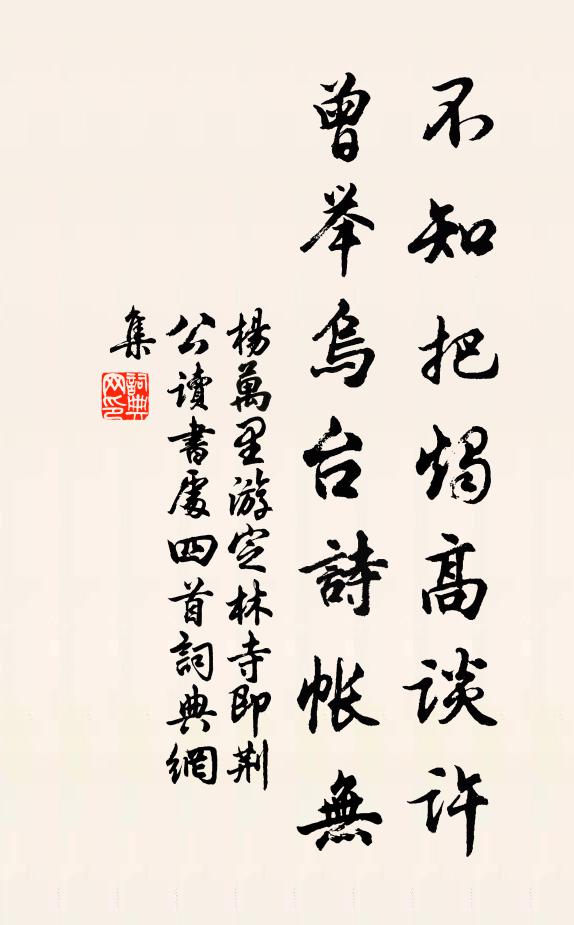 不知把燭高談許
曾举烏台詩帐無
楊萬里游定林寺即荆
公讀書處四首詞典網
集
詞典網印